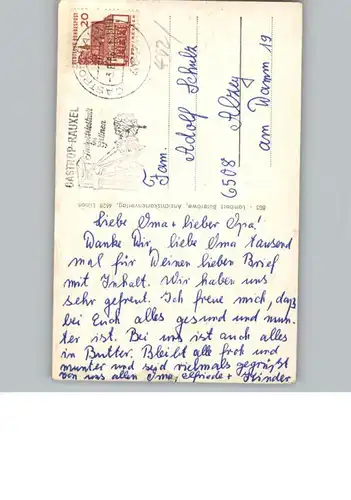 Fam.
Adolf Schulz
6508 Alzey
am Damm 19
CASTROP-RAUXEL
20
Liebe Oma + lieber Opa!
Danke Dir, liebe Oma tausend
mal für Deinen lieben Brief
mit Inhalt. Wir haben uns
sehr gefreut. Ich freue mich, daß
bei Euch alles gesund und mun-
ter ist. Bei uns ist auch alles
in Butter. Bleibt alle froh und
munter und seid vielmals gegrüßt
von uns allen Ima, Elfriede + Kinder